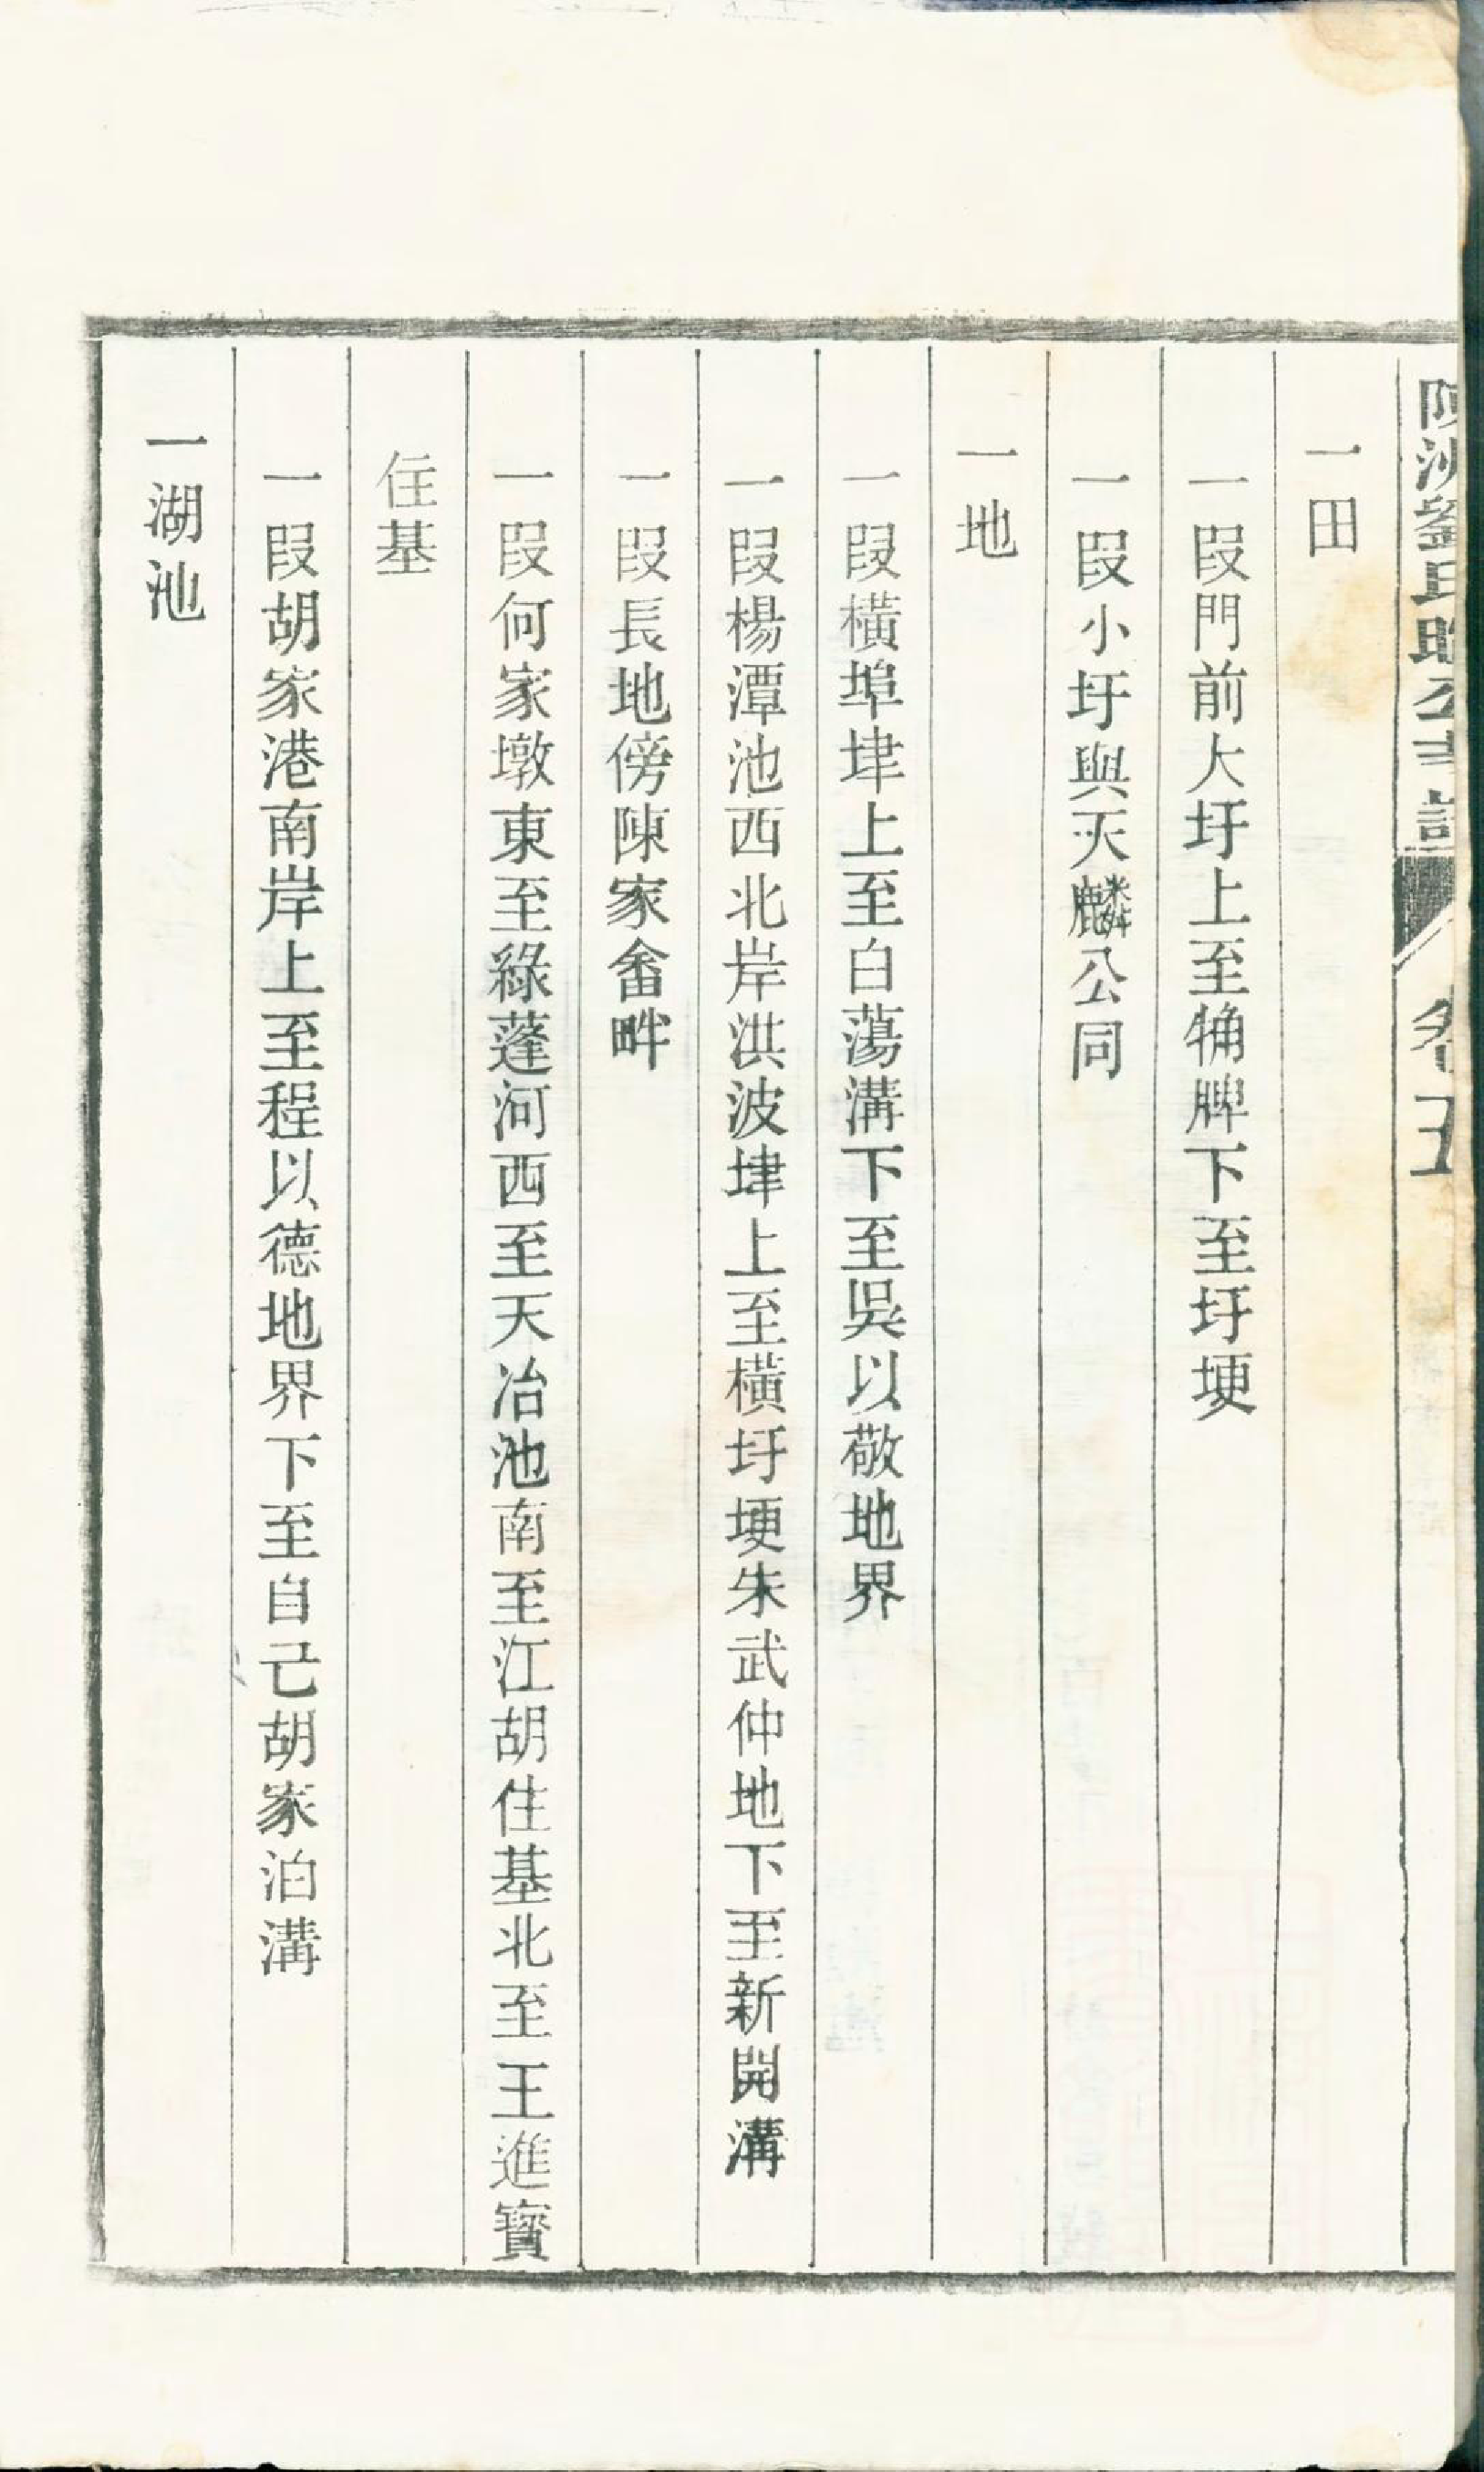 劉氏公 五
一田
一段門前大圩上至牗脾下至圩埂
一段小圩與天麟公同
一地
一段橫埠垏上至白蕩溝下至吳以敬地界
一段楊潭池西北岸洪波垏上至橫圩埂朱武仲地下至新開溝
一段長地傍陳家畬畔
一段何家墩東至綠蓬河西至天冶池南至江胡住基北至王進寳
住基
一段胡家港南岸上至程以德地界下至自己胡家泊溝
一湖池